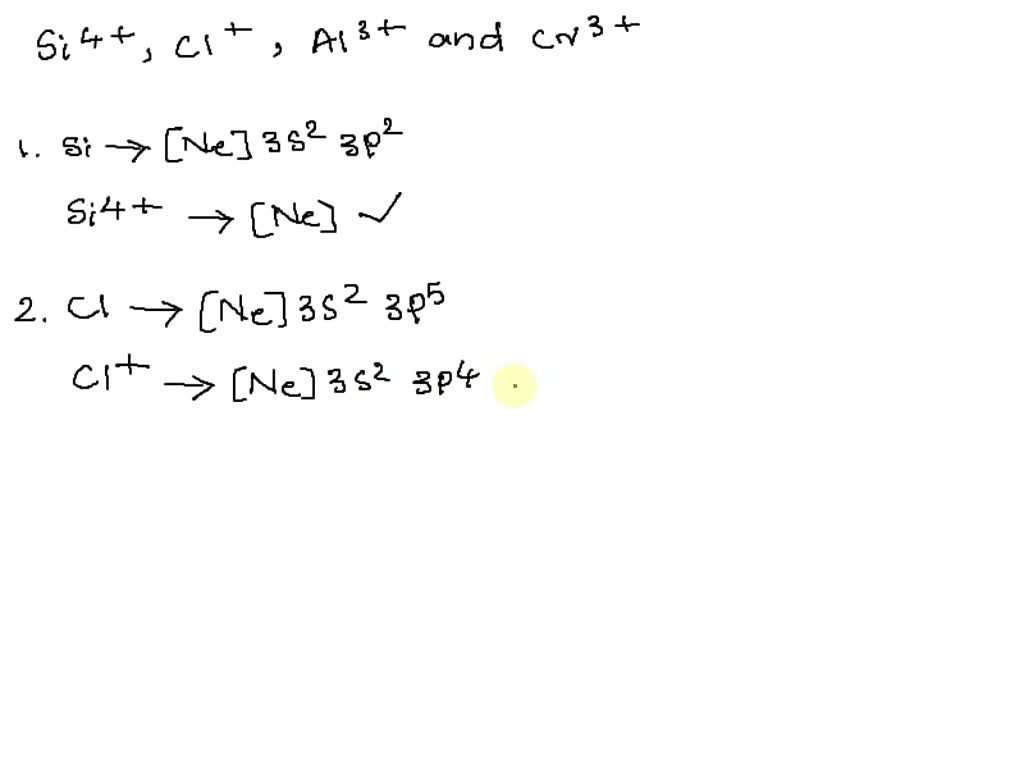 Si⁴⁺, Cl⁺, Al³⁺ and Cr³⁺
1. Si → [Ne] 3s² 3p²
Si⁴⁺ → [Ne] ✓
2. Cl → [Ne] 3s² 3p⁵
Cl⁺ → [Ne] 3s² 3p⁴